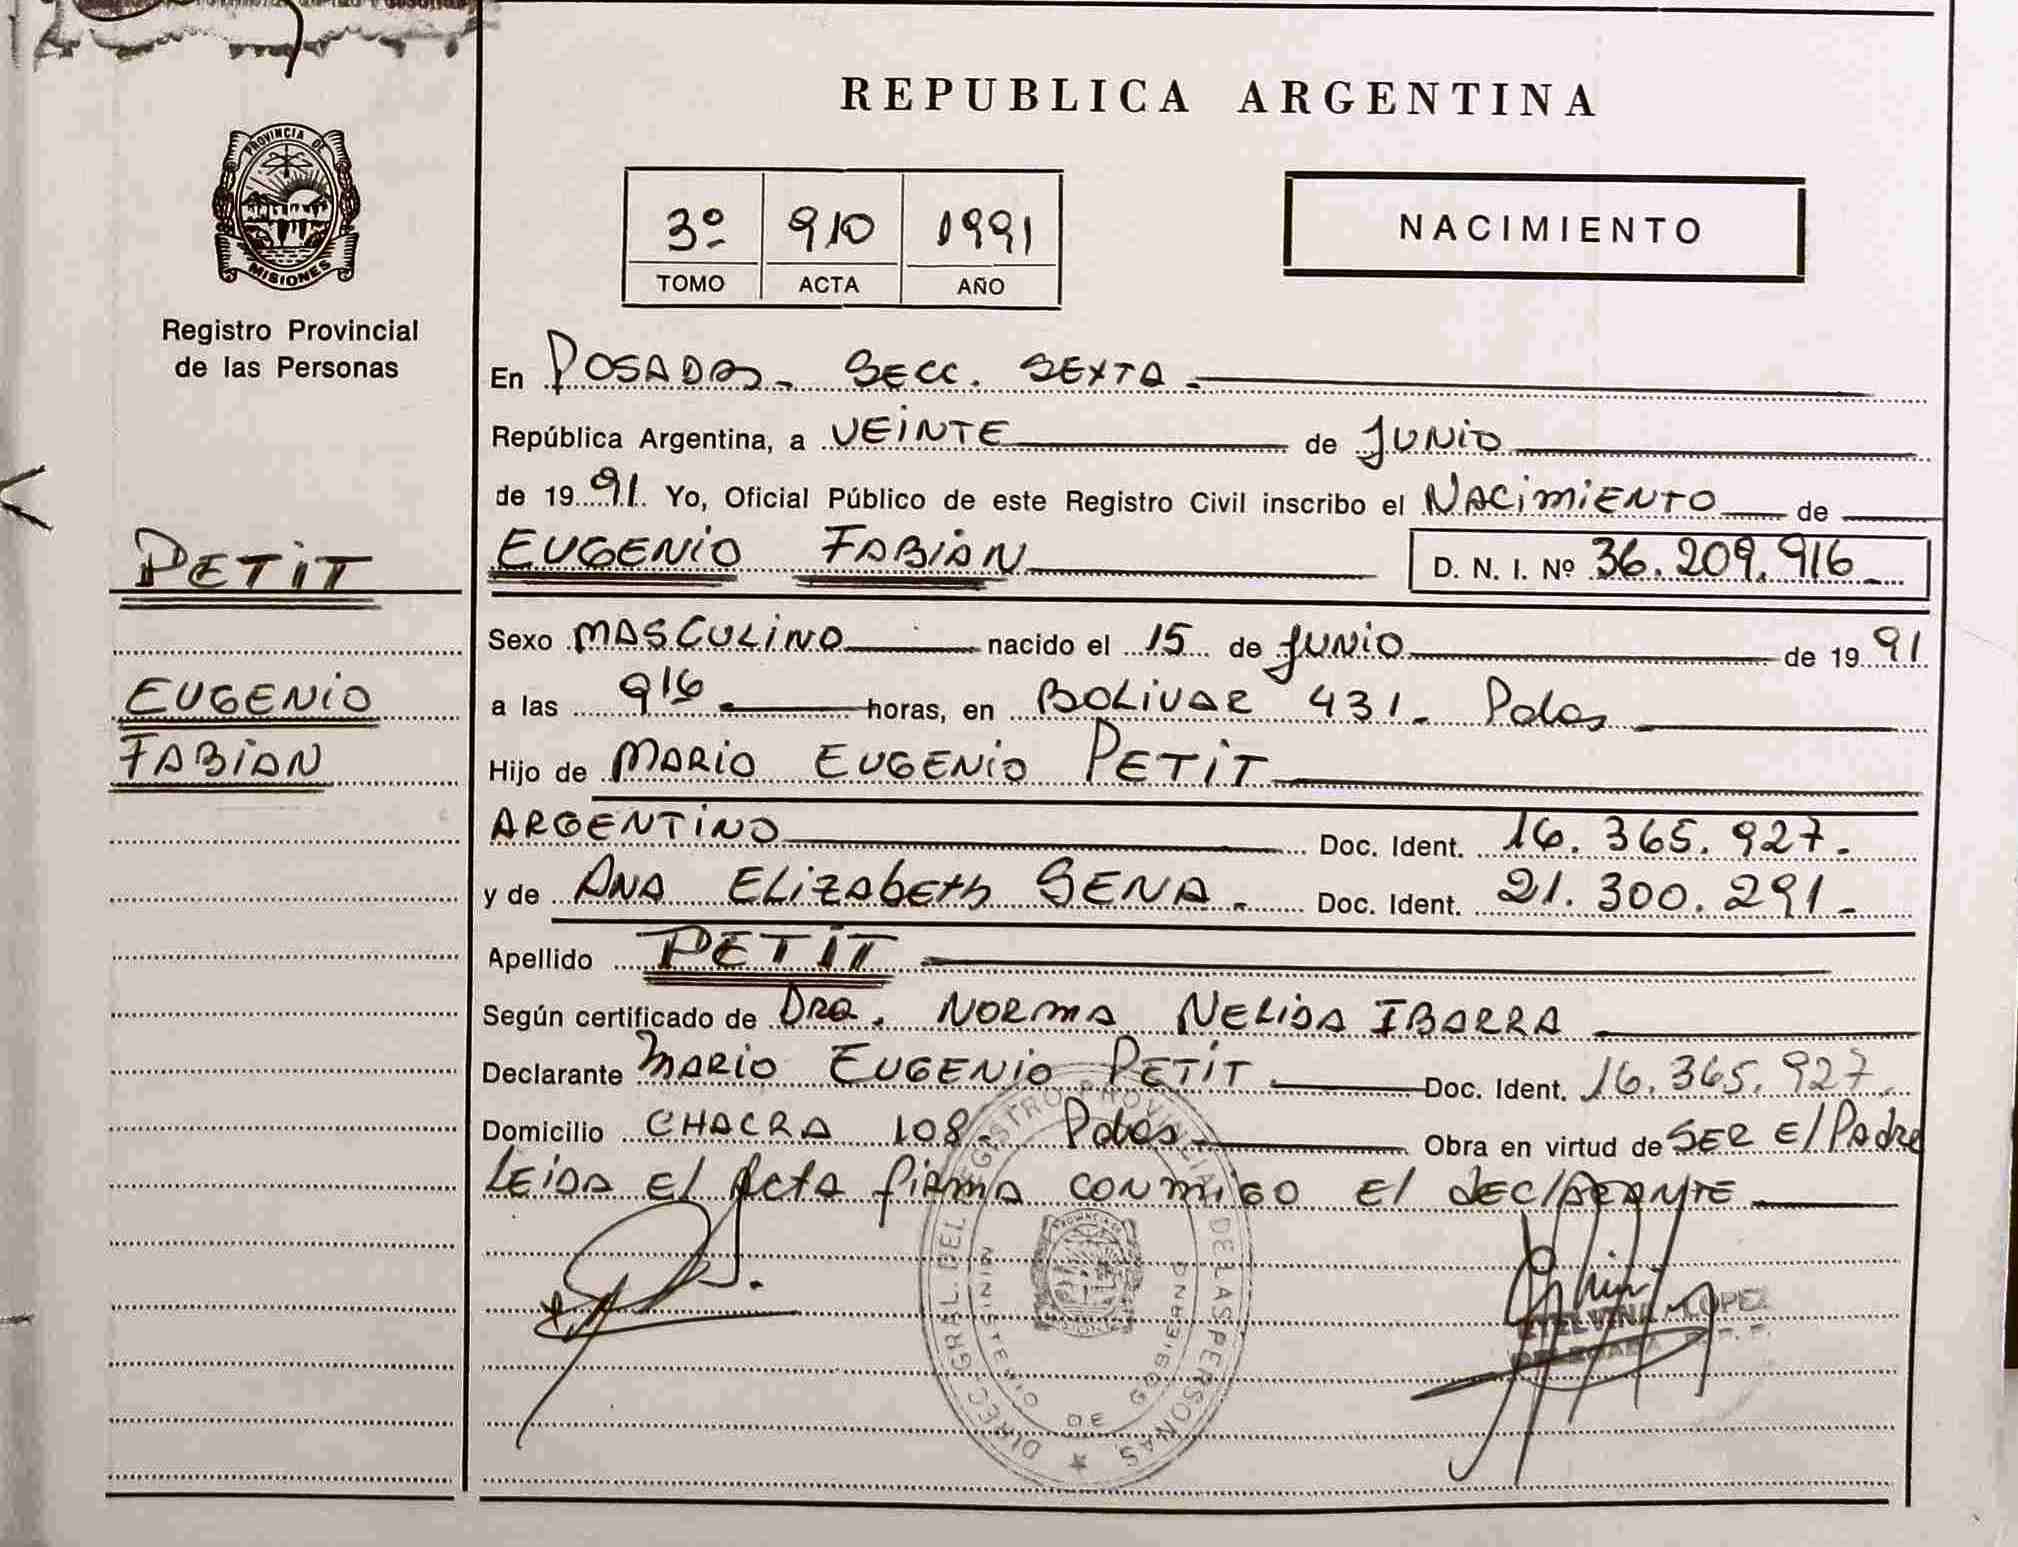 REPUBLICA ARGENTINA
PROVINCIA DE
MISIONES
Registro Provincial
de las Personas
3º 910 1991
TOMO ACTA AÑO
NACIMIENTO
En POSADAS. SECC. SEXTA.
República Argentina, a VEINTE de JUNIO
de 1991. Yo, Oficial Público de este Registro Civil inscribo el NACIMIENTO de
PETIT
EUGENIO FABIAN D. N. I. Nº 36.209.916
Sexo MASCULINO nacido el 15 de JUNIO de 1991
EUGENIO
FABIAN
a las 916 horas, en BOLIVAR 431. Pdas
Hijo de MARIO EUGENIO PETIT
ARGENTINO Doc. Ident. 16.365.927.
y de ANA ELIZABETH SENA. Doc. Ident. 21.300.291.
Apellido PETIT
Según certificado de DRA. NORMA NELIDA IBARRA
Declarante MARIO EUGENIO PETIT Doc. Ident. 16.365.927.
Domicilio CHACRA 108. Pdas. Obra en virtud de SER El Padre
LEIDA El Acta firma CONMIGO El DEClARANTE
DIREC. GRAL. DEL REGISTRO PROVINCIAL DE LAS PERSONAS
MINISTERIO DE GOBIERNO
ETELVINA LOPEZ
DELEGADA